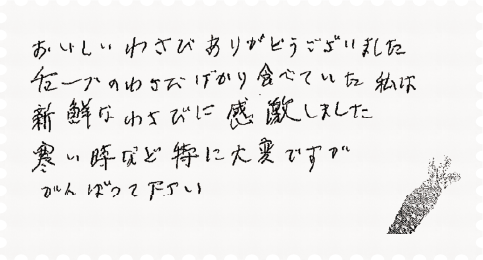 おいしい わさび ありがとうございました
チューブのわさびばかり食べていた私は
新鮮なわさびに感激しました
寒い時など特に大変ですが
がんばって下さい